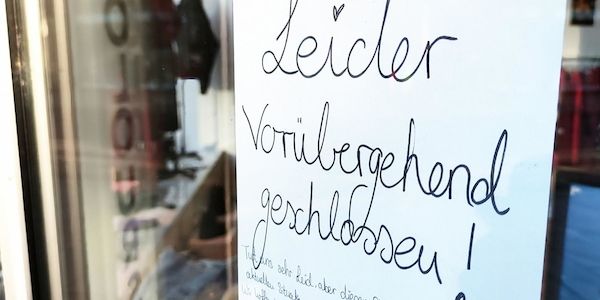 Leider
Vorübergehend
geschlossen!
Tut uns sehr leid, aber diese
aktuellen
Wir